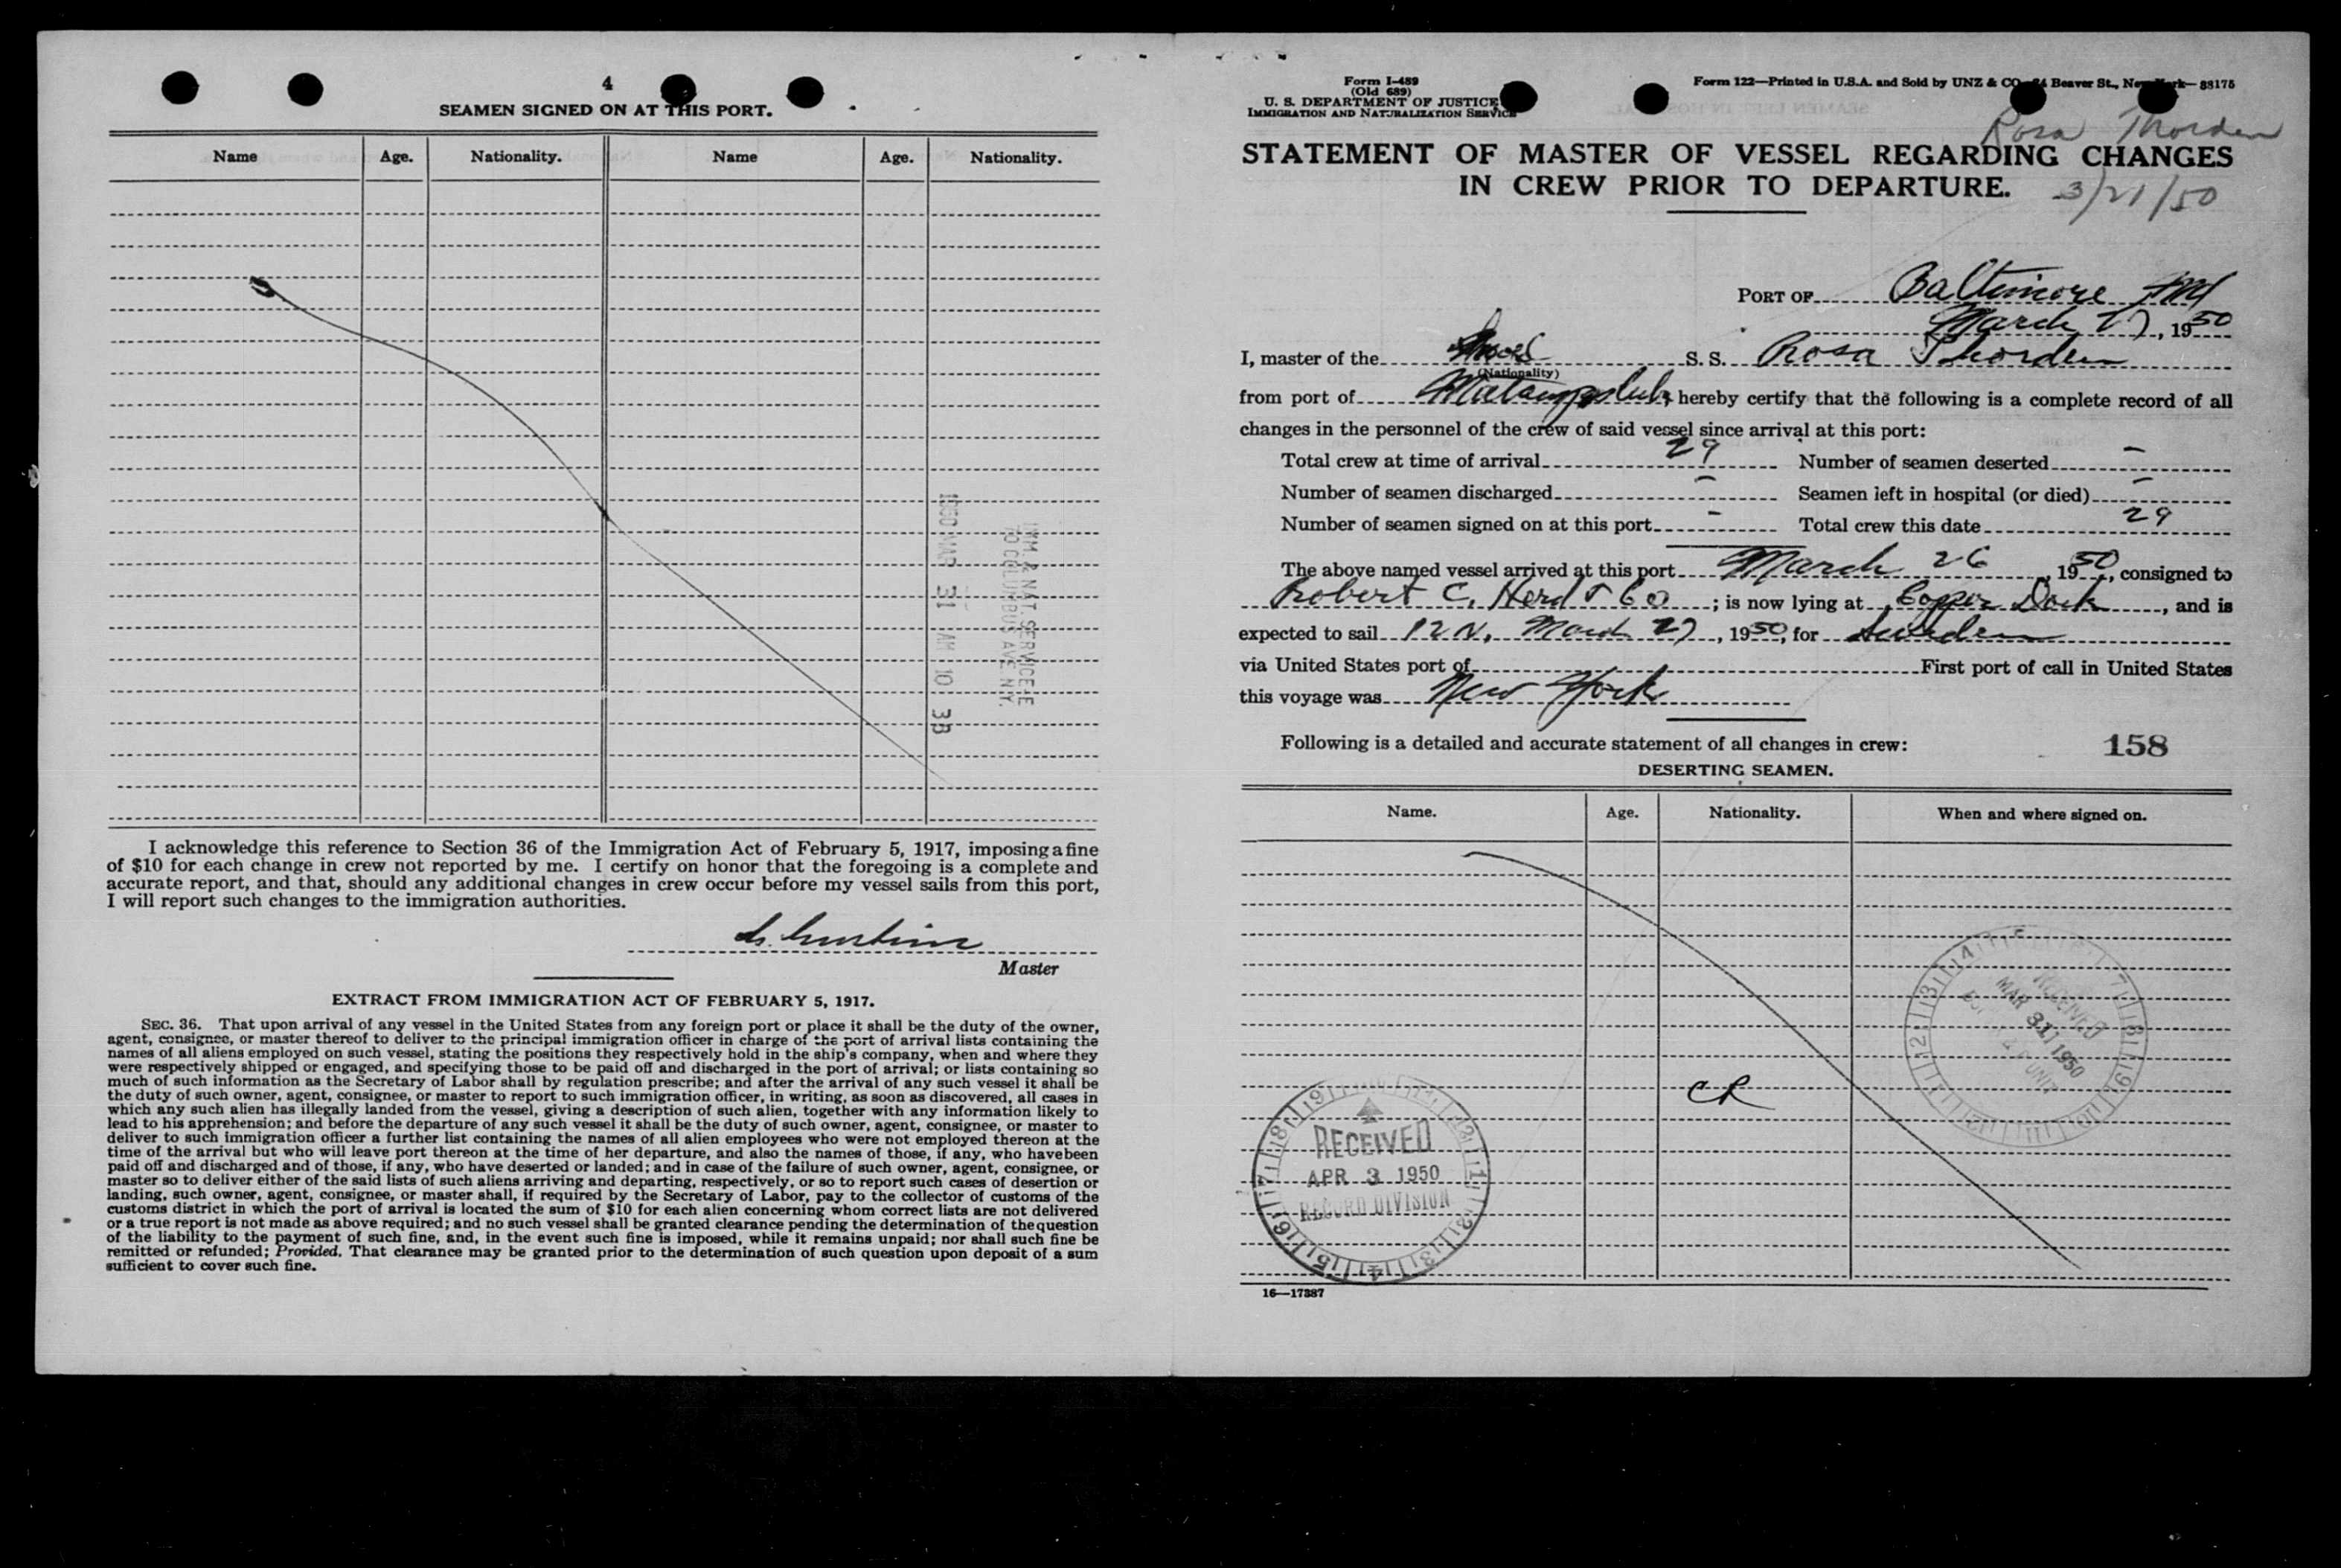 4
SEAMEN SIGNED ON AT THIS PORT.
Name Age. Nationality. Name Age. Nationality.
1950 MAR 31 AM 10 38
IMM. & NAT. SERVICE
70 COLUMBUS AVE N.Y.
I acknowledge this reference to Section 36 of the Immigration Act of February 5, 1917, imposing a fine
of $10 for each change in crew not reported by me. I certify on honor that the foregoing is a complete and
accurate report, and that, should any additional changes in crew occur before my vessel sails from this port,
I will report such changes to the immigration authorities.
Master
EXTRACT FROM IMMIGRATION ACT OF FEBRUARY 5, 1917.
SEC. 36. That upon arrival of any vessel in the United States from any foreign port or place it shall be the duty of the owner,
agent, consignee, or master thereof to deliver to the principal immigration officer in charge of the port of arrival lists containing the
names of all aliens employed on such vessel, stating the positions they respectively hold in the ship's company, when and where they
were respectively shipped or engaged, and specifying those to be paid off and discharged in the port of arrival; or lists containing so
much of such information as the Secretary of Labor shall by regulation prescribe; and after the arrival of any such vessel it shall be
the duty of such owner, agent, consignee, or master to report to such immigration officer, in writing, as soon as discovered, all cases in
which any such alien has illegally landed from the vessel, giving a description of such alien, together with any information likely to
lead to his apprehension; and before the departure of any such vessel it shall be the duty of such owner, agent, consignee, or master to
deliver to such immigration officer a further list containing the names of all alien employees who were not employed thereon at the
time of the arrival but who will leave port thereon at the time of her departure, and also the names of those, if any, who have been
paid off and discharged and of those, if any, who have deserted or landed; and in case of the failure of such owner, agent, consignee, or
master so to deliver either of the said lists of such aliens arriving and departing, respectively, or so to report such cases of desertion or
landing, such owner, agent, consignee, or master shall, if required by the Secretary of Labor, pay to the collector of customs of the
customs district in which the port of arrival is located the sum of $10 for each alien concerning whom correct lists are not delivered
or a true report is not made as above required; and no such vessel shall be granted clearance pending the determination of the question
of the liability to the payment of such fine, and, in the event such fine is imposed, while it remains unpaid; nor shall such fine be
remitted or refunded; Provided, That clearance may be granted prior to the determination of such question upon deposit of a sum
sufficient to cover such fine.
Form I-489
(Old 689)
U. S. DEPARTMENT OF JUSTICE
IMMIGRATION AND NATURALIZATION SERVICE
Form 122—Printed in U.S.A. and Sold by UNZ & CO. Beaver St., New York—88175
Rosa Thorden
STATEMENT OF MASTER OF VESSEL REGARDING CHANGES
IN CREW PRIOR TO DEPARTURE.
3/21/50
PORT OF Baltimore Md
March 27, 1950
I, master of the S. S. Rosa Thorden
(Nationality)
from port of hereby certify that the following is a complete record of all
changes in the personnel of the crew of said vessel since arrival at this port:
Total crew at time of arrival 29 Number of seamen deserted -
Number of seamen discharged - Seamen left in hospital (or died) -
Number of seamen signed on at this port - Total crew this date 29
The above named vessel arrived at this port March 26, 1950, consigned to
Robert C. Herd & Co; is now lying at Copper Dock, and is
expected to sail 12 N. March 27, 1950, for Sweden
via United States port of First port of call in United States
this voyage was New York
Following is a detailed and accurate statement of all changes in crew: 158
DESERTING SEAMEN.
Name. Age. Nationality. When and where signed on.
RECEIVED
MAR 31 1950
CR
RECEIVED
APR 3 1950
RECORD DIVISION
16—17387